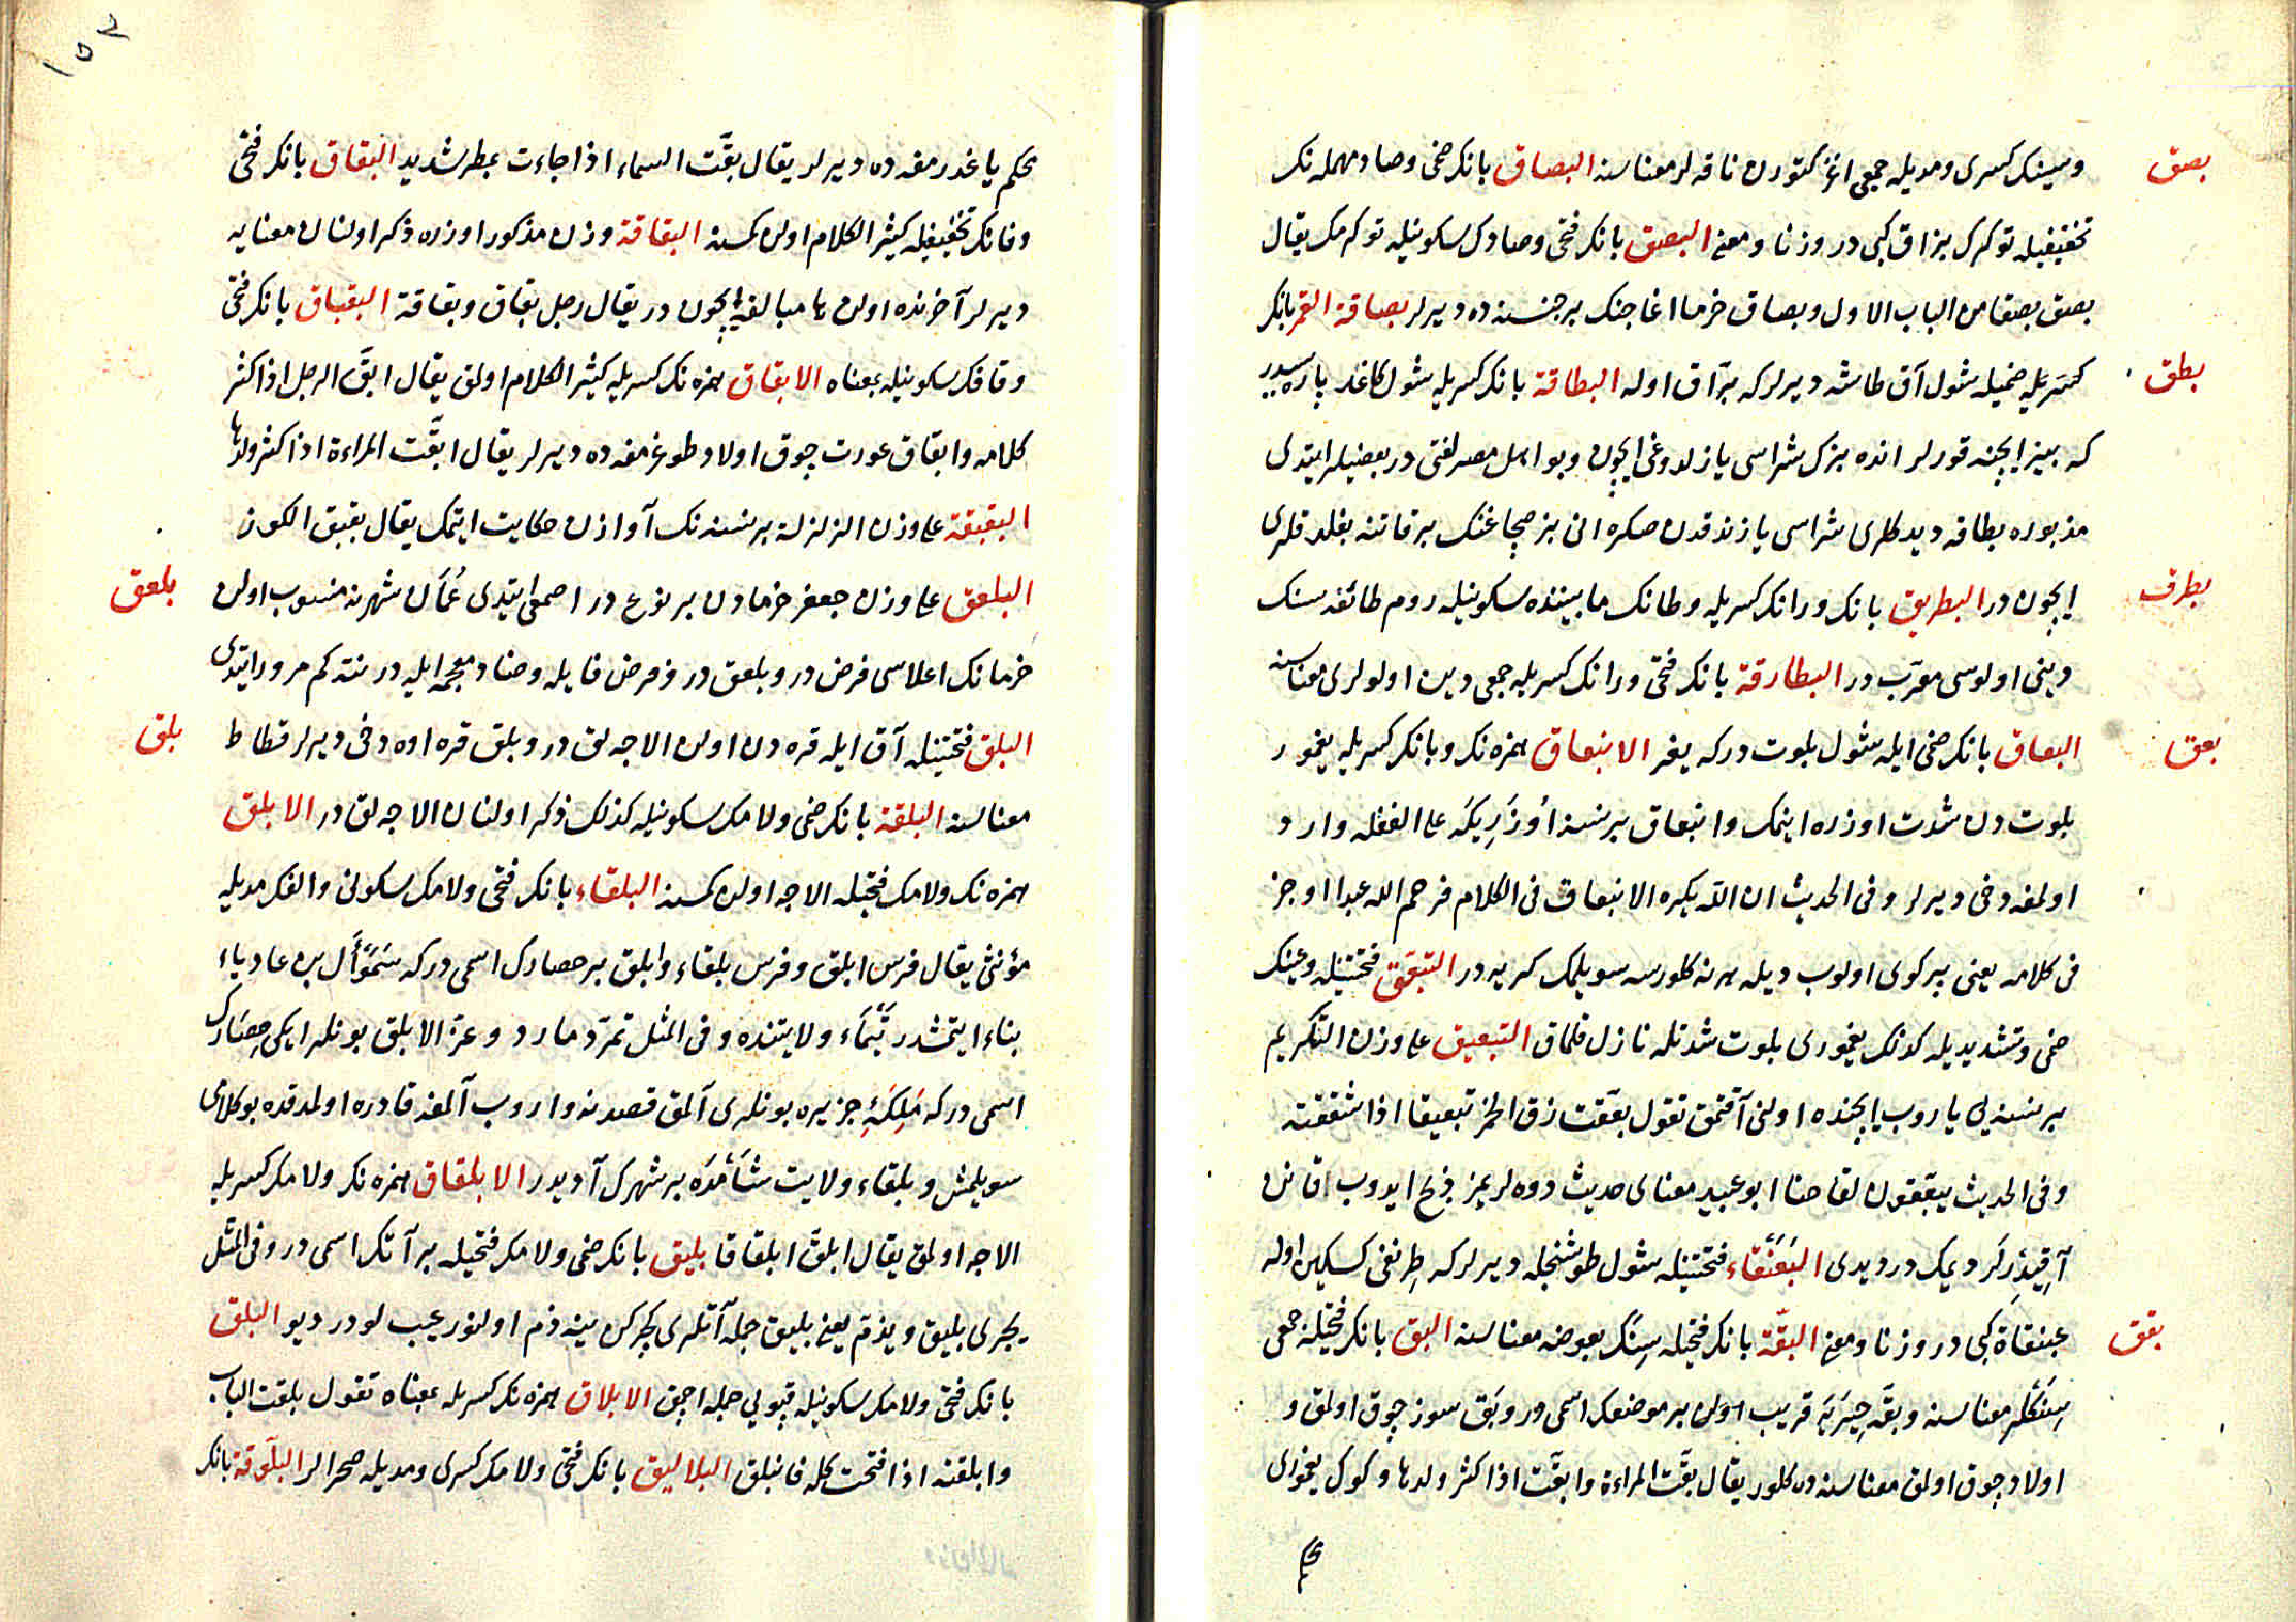 بصق
وسينك كسرى ومديله جمعى اغز كتورن ناقه لر معناسنه البصاق بانك ضمى وصاد مهمله نك
تخفيفيله توكرك بزاق كبى در وزنا ومعنى البصق بانك فتحى وصادك سكونيله توكرمك يقال
بصق بصقا من الباب الاول وبصاق خرما اغاجنك بر جنسنه ده ديرلر بصاقة القمر بانك
بطق
ضميله شول آق طاشه ديرلر كه براق اوله البطاقة بانك كسريله شول كاغد پاره سيدر
كه بيز ايچنه قورلر انده بزك بهاسى يازلدوغى ايچون وبو اهل مصر لغتى در بعضيلر ايتدى
مذبوره بطاقه ديدكلرى بهاسى يازندقدن صكره انى بز صچاغنك بر قاتنه بغلدقلرى
بطرق
ايچون در البطريق بانك ورانك كسريله وطانك مابيننده سكونيله روم طائفه سنك
دينى اولوسى معرب در البطارقة بانك فتحى ورانك كسريله جمعى دين اولولرى معناسنه
بعق
البعاق بانك ضمى ايله شول بلوت دركه يغر الانبعاق همزه نك وبانك كسريله يغمور
بلوتدن شدت اوزره اينمك وانبعاق بر نسنه اوزريكه على الغفله وارد
اولمغه دخى ديرلر وفى الحديث ان الله يكره الانبعاق فى الكلام فرحم الله عبدا اوجز
فى كلامه يعنى پركوى اولوب ديله هر نه كلورسه سويلمك كريه در التبعق فتحتينله وعينك
ضمى وتشديديله كذلك يغمورى بلوت شدتله نازل قلماق التبعيق على وزن التكريم
بر نسنه يى ياروب ايچنده اولنى آقتمق تقول بعقت زق الخمر تبعيقا اذا شققته
وفى الحديث يبعقون لقاحنا ابو عبيد معناى حديث دوه لريمز ذبح ايدوب قانن
آقيدرلر ديمك در ديدى البعنقاء فتحتينله شول طوشنجله ديرلر كه طرنغى كسكين اوله
عبنقاة كبى در وزنا ومعنى البقة بانك فتحيله سنك بعوضه معناسنه البق بانك فتحيله جمعى
بقق
سنكلر معناسنه وبقه حيره يه قريب اولن بر موضعك اسمى در وبق سوز چوق اولمق و
اولاد چوق اولمق معناسنه ده كلور يقال بقت المراءة وابقت اذا كثر ولدها وكوك يغمورى
محكم
١٥٢
محكم ياغدرمغه ده ديرلر يقال بقت السماء اذا جاءت بمطر شديد البقاق بانك فتحى
وقانك تخفيفيله كثير الكلام اولن كمسنه البقاقة وزن مذكور اوزره ذكر اولنان معنايه
ديرلر آخرنده اولن ها مبالغه ايچون در يقال رجل بقاق وبقاقة البقباق بانك فتحى
وقافك سكونيله بمعناه الابقاق همزه نك كسريله كثير الكلام اولمق يقال ابق الرجل اذا كثر
كلامه وابقاق عورت چوق اولاد طوغرمغه ده ديرلر يقال ابقت المراءة اذا كثر ولدها
البقبقة على وزن الزلزلة بر نسنه نك آوازن حكايت ايتمك يقال بقبق الكوز
بلعق
البلعق على وزن جعفر خرمادن بر نوع در اصمعى ايتدى عمان شهرنه منسوب اولن
خرمانك اعلاسى فرض در وبلعق در وفرض فايله وضاد معجمه ايله در نته كم مرور ايتدى
بلق
البلق فتحتينله آق ايله قره دن اولن الاجه لق در وبلق قره اوه دخى ديرلر فسطاط
معناسنه البلقة بانك ضمى ولامك سكونيله كذلك ذكر اولنان الاجه لق در الابلق
همزه نك ولامك فتحيله الاجه اولن كمسنه البلقاء بانك فتحى ولامك سكونى والفك مديله
مؤنثى يقال فرس ابلق وفرس بلقاء وابلق بر حصارك اسمى در كه سموأل بن عادياء
بناء ايتمشدر تيماء ولايتنده وفى المثل تمرد مارد وعز الابلق بونلر ايكى حصارك
اسمى در كه ملكهٔ جزيره بونلرى آلمق قصدنه واروب آلمغه قادره اولمدقده بو كلامى
سويلمش وبلقاء ولايت شأمده بر شهرك آديدر الابلقاق همزه نك ولامك كسريله
الاجه اولمق يقال ابلق ابلقاقا بليق بانك ضمى ولامك فتحيله بر آتك اسمى در وفى المثل
يجرى بليق ويذم يعنى بليق جمله آتلرى كچركن ينه ذم اولنور عجب لودر ديو البلق
بانك فتحى ولامك سكونيله قپويى جمله اچمق الابلاق همزه نك كسريله بمعناه تقول بلقت الباب
وابلقته اذا فتحت كله فانبلق البلاليق بانك فتحى ولامك كسرى ومديله صحرالر البلوقة بانك